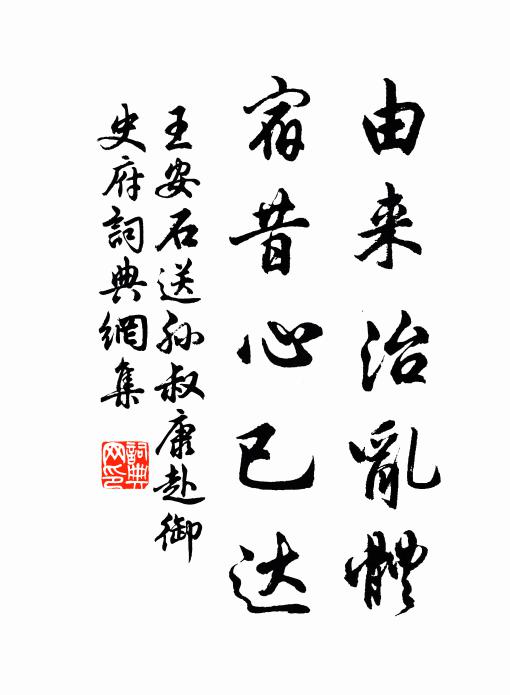 由来治亂體
宿昔心已达
王安石送孙叔康赴御
史府詞典網集
詞典
网印